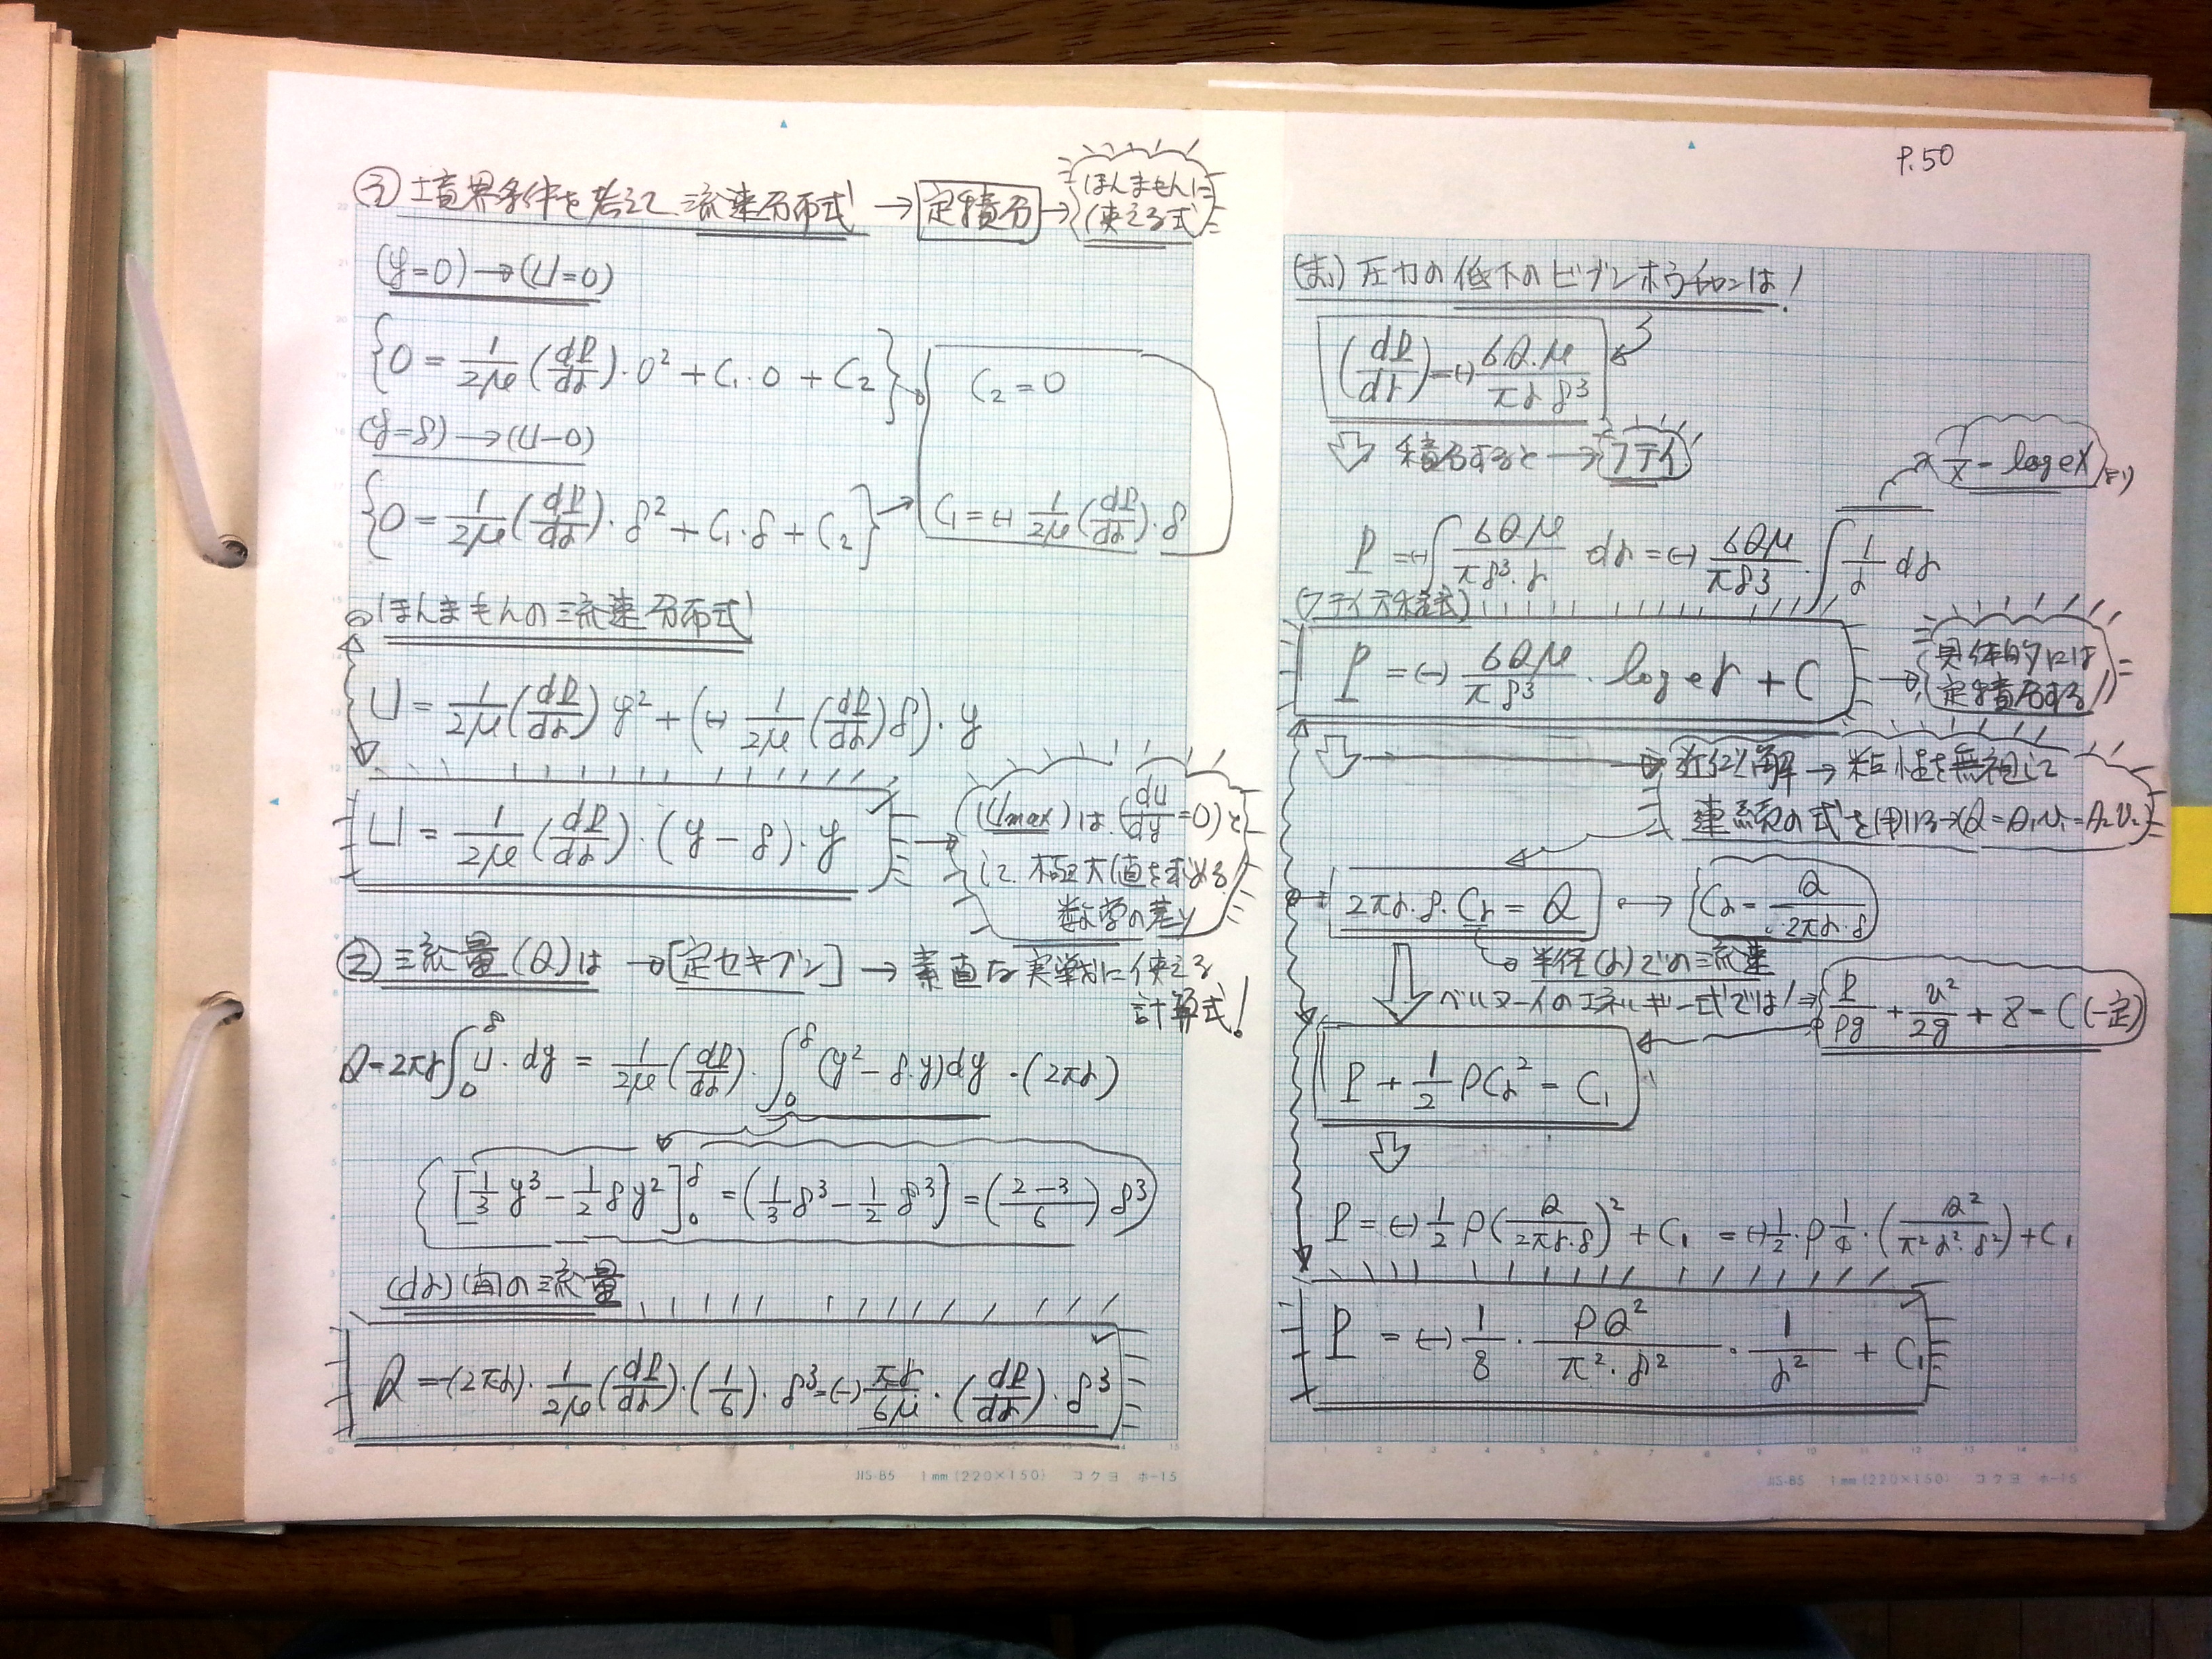 ③境界条件を考えて流速分布式! → 定積分 → ほんまもんに使える式
(y=0)→(U=0)
{0=1/2μ(dP/dr)・0²+C₁・0+C₂}
C₂=0
(y=δ)→(U=0)
{0=1/2μ(dP/dr)・δ²+C₁・δ+C₂}
C₁=(-)1/2μ(dP/dr)・δ
ほんまもんの流速分布式!
U=1/2μ(dP/dr)y²+((-)1/2μ(dP/dr)δ)・y
U=1/2μ(dP/dr)・(y-δ)・y
(Umax)は(dU/dy=0)と
して極大値を求める
数学の差い
②流量(Q)は→[定セキブン]→素直な実戦に使える
計算式!
Q=2πr∫₀^δ U・dy=1/2μ(dP/dr)・∫₀^δ(y²-δ・y)dy・(2πr)
{[1/3y³-1/2δy²]₀^δ=(1/3δ³-1/2δ³)=(2-3/6)δ³}
(dr)間の流量
Q=-(2πr)・1/2μ(dP/dr)・(1/6)・δ³=(-)πr/6μ・(dP/dr)・δ³
JIS-B5 1mm(220×150) コクヨ ホ-15
P.50
圧力の低下のビブンホウテイは!
(dP/dr)=(-)6Q・μ/πrδ³
積分すると→フテイ
1/x=logex より
P=(-)∫6Qμ/πδ³・r dr=(-)6Qμ/πδ³・∫1/r dr
(フテイ式)
P=(-)6Qμ/πδ³・loger+C
具体的には
定積分する!
近似解→粘性を無視して
連続の式を用いる→(Q=A₁V₁=A₂V₂)
2πr・δ・Cr=Q → {Cr=Q/2πr・δ}
半径(r)での流速
ベルヌーイのエネルギー式では!→{P/ρg+v²/2g+Z=C(一定)}
P+1/2ρCr²=C₁
P=(-)1/2ρ(Q/2πr・δ)²+C₁=(-)1/2・ρ1/4・(Q²/π²・r²・δ²)+C₁
P=(-)1/8・ρQ²/π²・δ²・1/r²+C₁
JIS-B5 1mm(220×150) コクヨ ホ-15